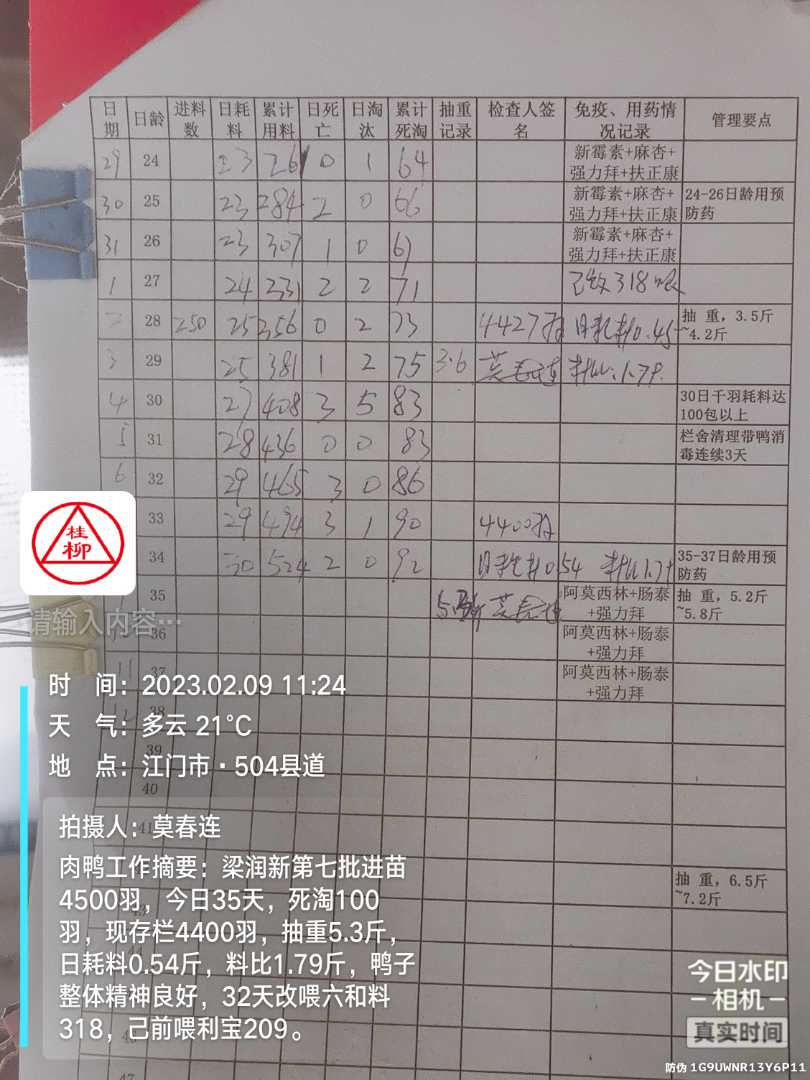 日期 日龄 进料数 日耗料 累计用料 日死亡 日淘汰 累计死淘 抽重记录 检查人签名 免疫、用药情况记录 管理要点
29 24 23 261 0 1 64 新霉素+麻杏+强力拜+扶正康
30 25 23 284 2 0 66 新霉素+麻杏+强力拜+扶正康 24-26日龄用预防药
31 26 23 307 1 0 67 新霉素+麻杏+强力拜+扶正康
1 27 24 231 2 2 71 318
2 28 250 25 356 0 2 73 4427羽 日耗料0.45 抽 重，3.5斤~4.2斤
3 29 25 381 1 2 75 3.6 莫春连 料比:1.79
4 30 27 408 3 5 83 30日千羽耗料达100包以上
5 31 28 436 0 0 83 栏舍清理带鸭消毒连续3天
6 32 29 465 3 0 86
33 29 494 3 1 90 4400羽
34 30 524 2 0 92 日耗料0.54 料比1.79 35-37日龄用预防药
35 莫春连 阿莫西林+肠泰+强力拜 抽 重，5.2斤~5.8斤
36 阿莫西林+肠泰+强力拜
11 37 阿莫西林+肠泰+强力拜
12 38
39
40
41
抽 重，6.5斤~7.2斤
47
桂柳
请输入内容…
时 间：2023.02.09 11:24
天 气：多云 21℃
地 点：江门市·504县道
拍摄人：莫春连
肉鸭工作摘要：梁润新第七批进苗
4500羽，今日35天，死淘100
羽，现存栏4400羽，抽重5.3斤，
日耗料0.54斤，料比1.79斤，鸭子
整体精神良好，32天改喂六和料
318，己前喂利宝209。
今日水印
相机
真实时间
防伪 1G9UWNR13Y6P11